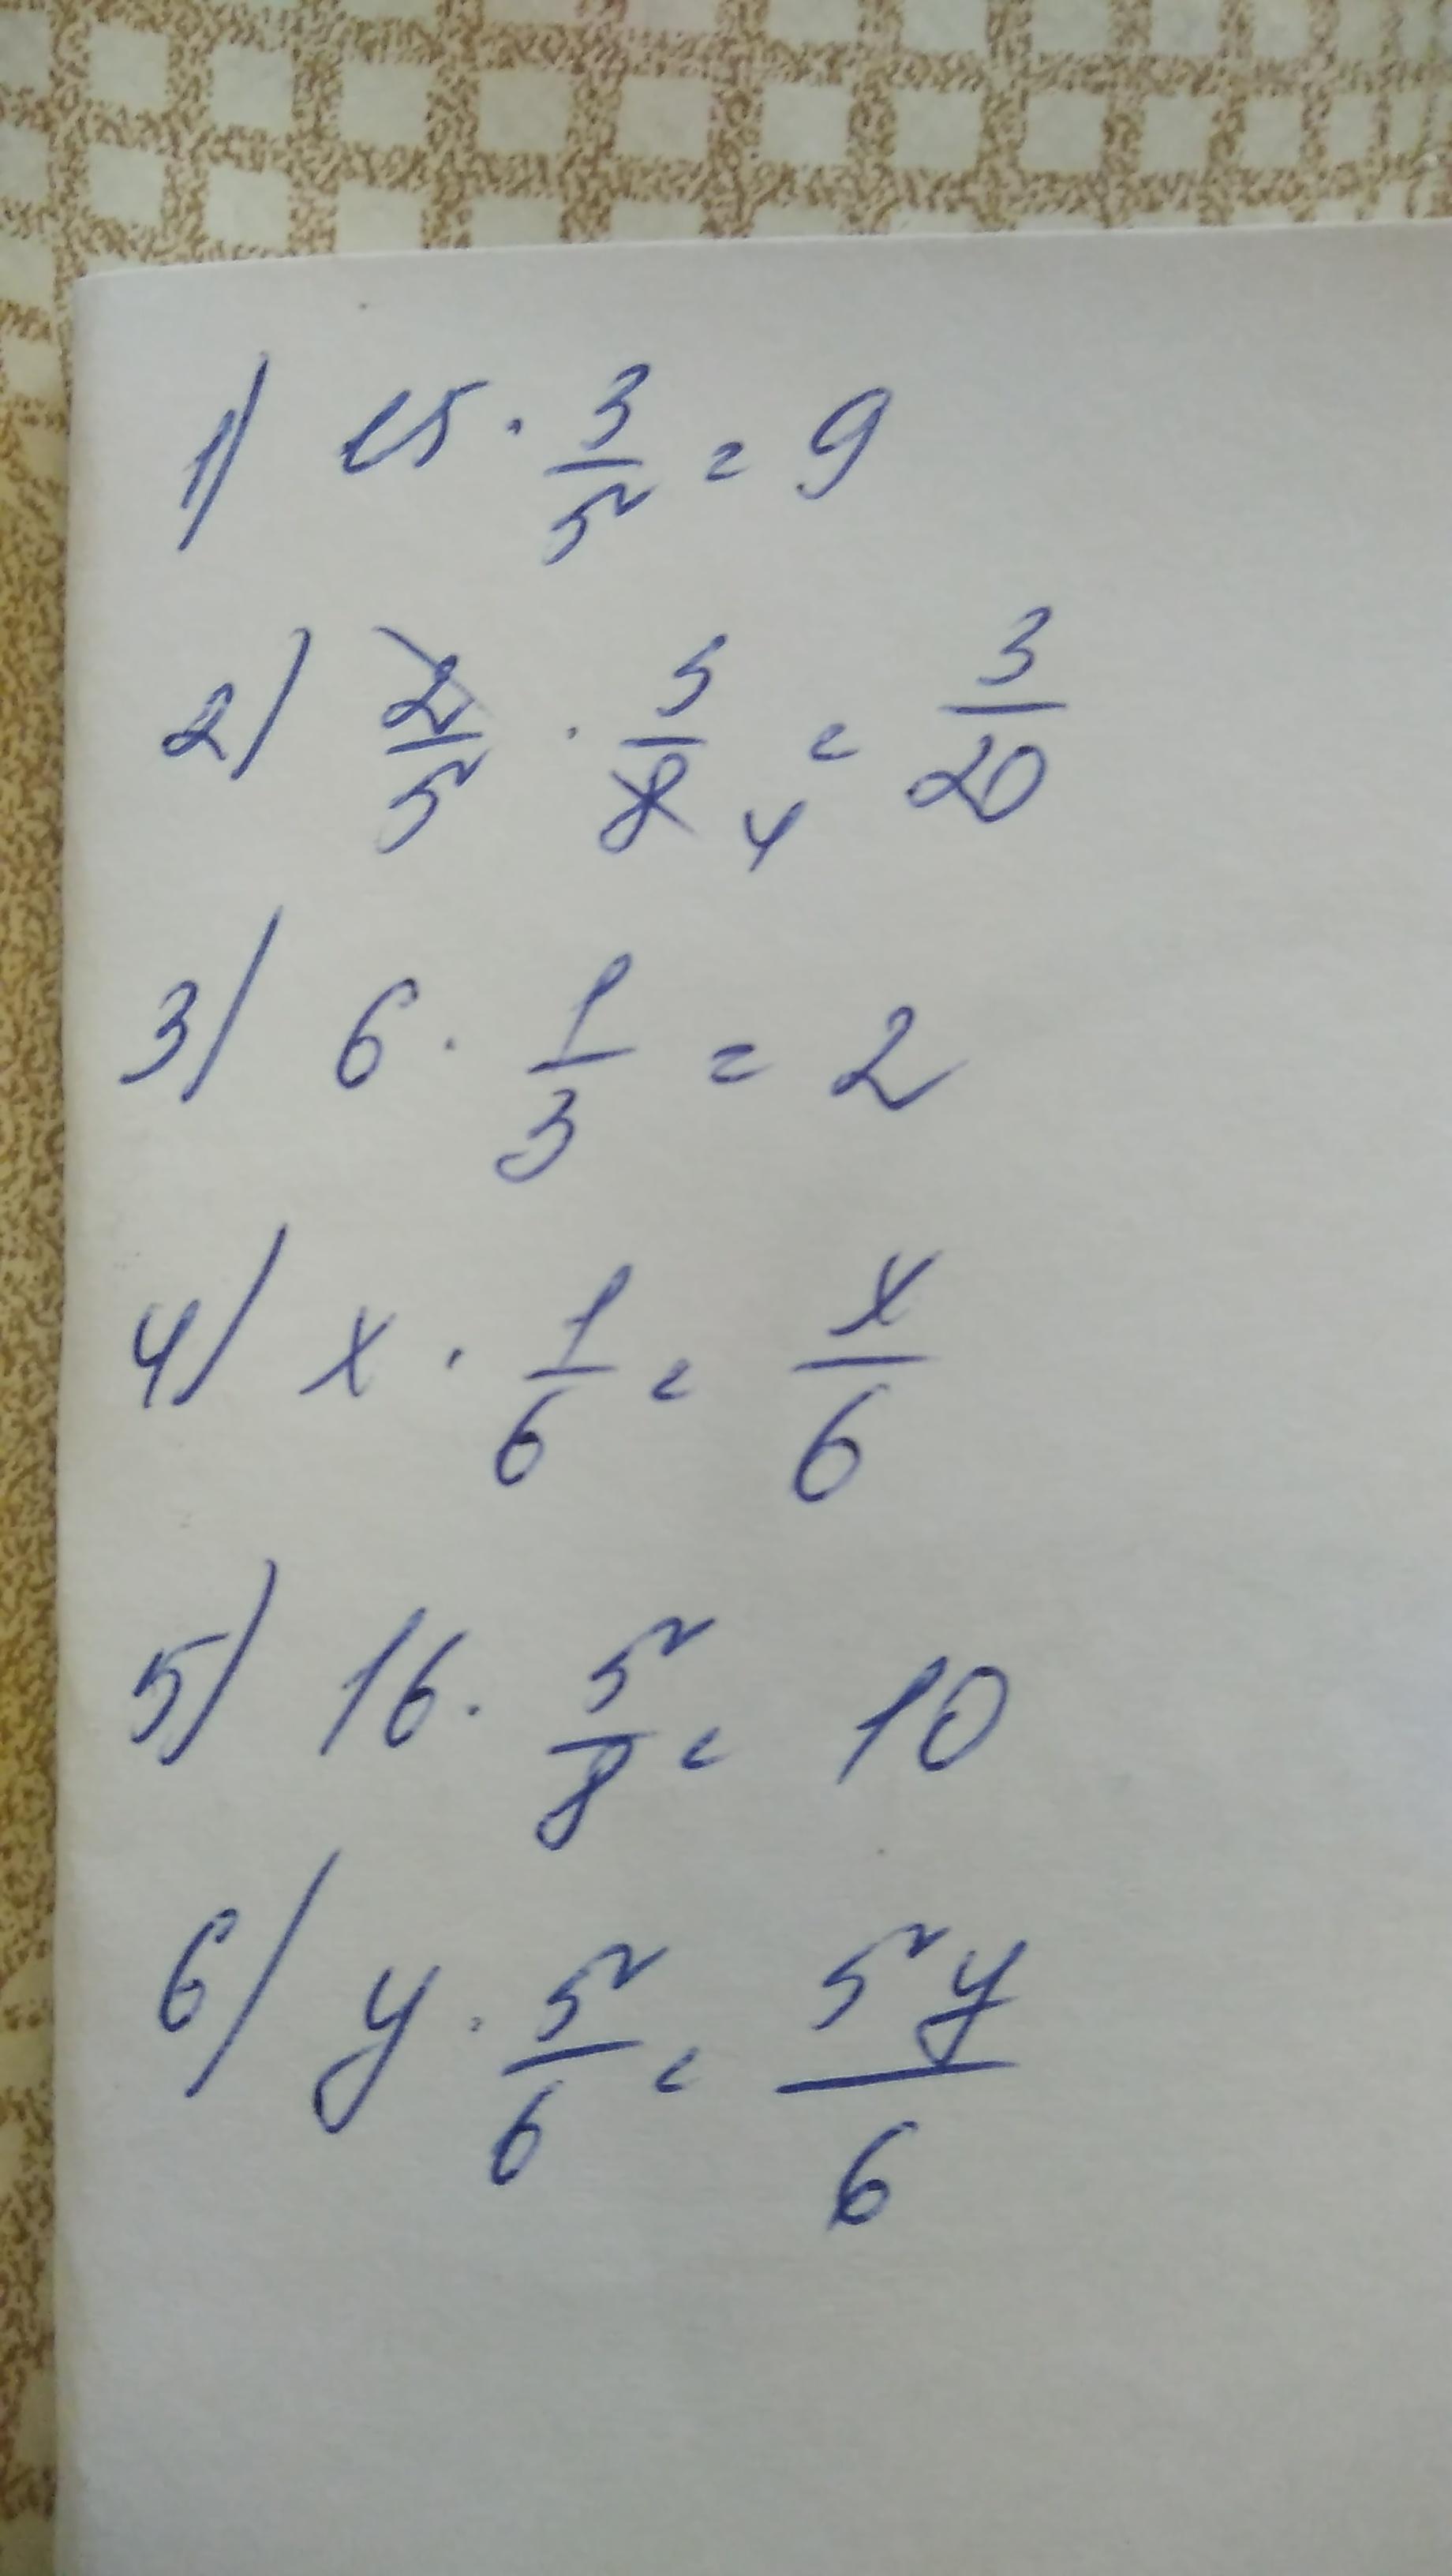 1) 15 · 3/5 = 9
2) 2/5 · 3/8 4 = 3/20
3) 6 · 1/3 = 2
4) x · 1/6 = x/6
5) 16 · 5/8 = 10
6) y · 5/6 = 5y/6